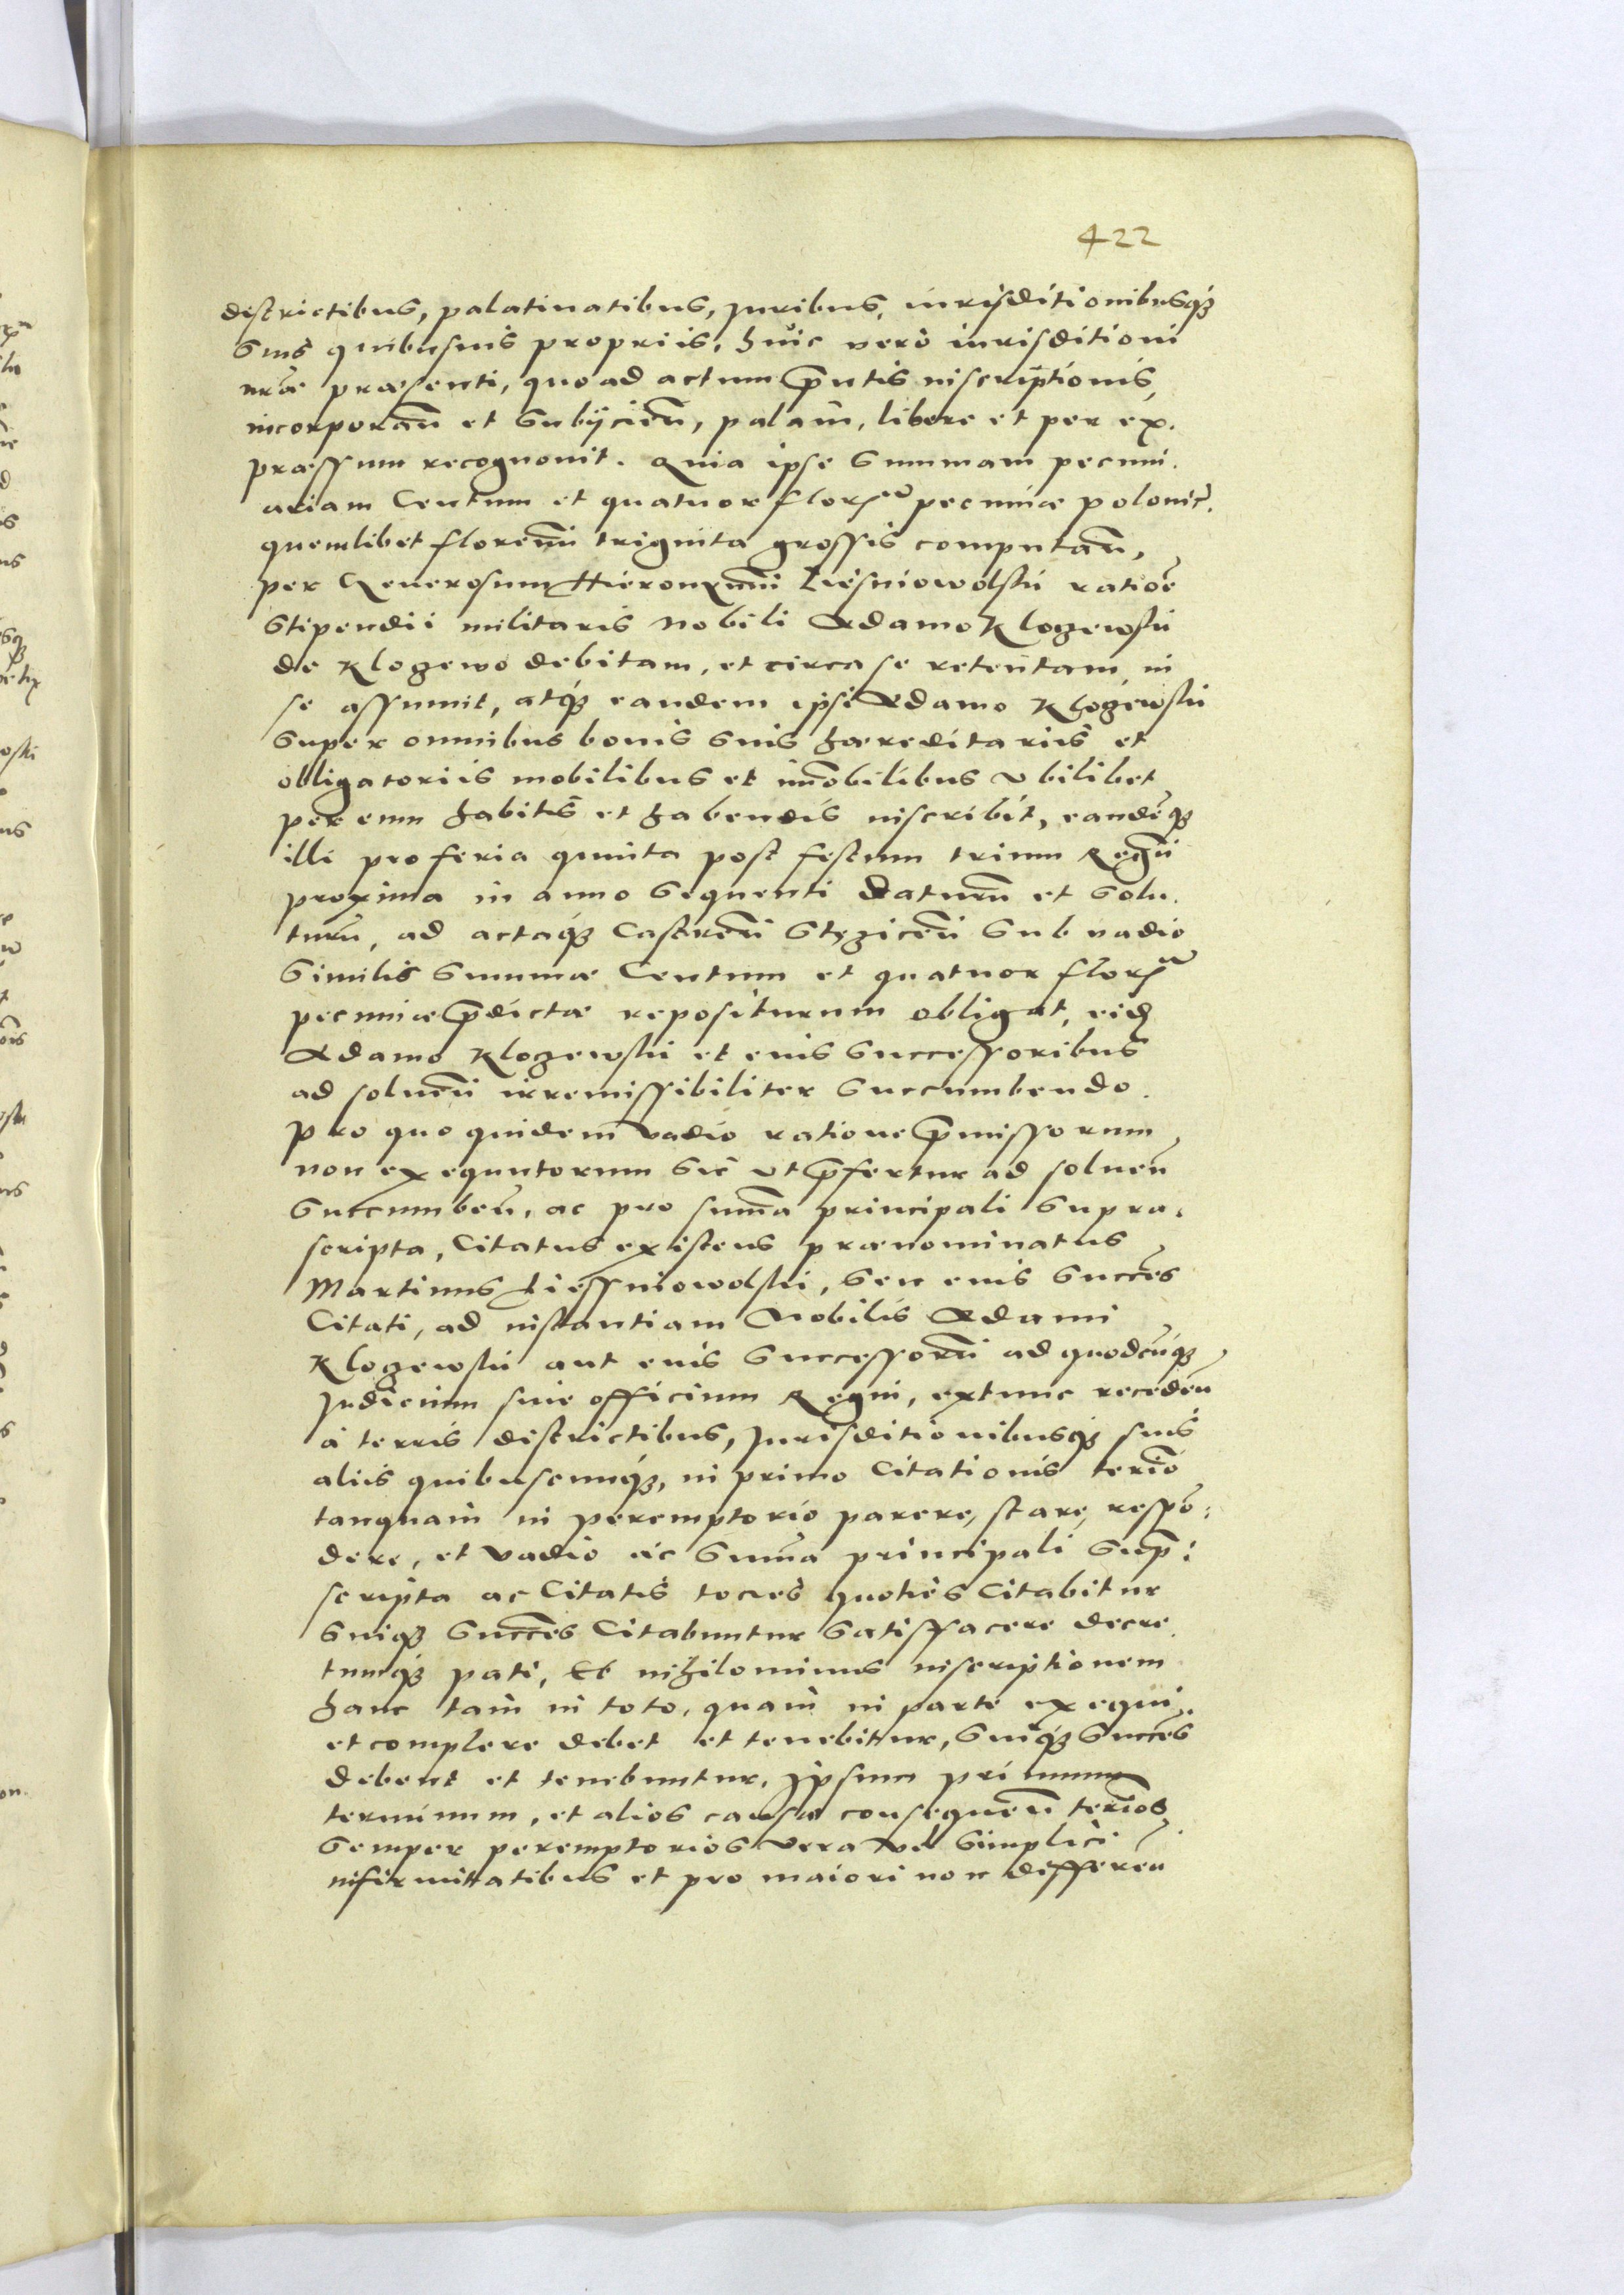 422
districtibus, palatinatibus, juribus, iurisditionibusq₃
suis quibusuis propriis, huic verò iurisditioni
nr̃æ præsenti, quo ad actum p̃ntis inscriptionis,
incorporañ et subijcieñ, palam, libere et per ex.
præssum recognouit. Quia ipse summam pecuni.
ariam Centum et quatuor flor pecuniæ polonic̃.
quemlibet florenũ triginta grossis computañ,
per Generosum Hieronymũ Liesniowolski ratioe
stipendii militaris Nobili Adamo Klogewski
de Klogewo debitam, et circa se retentam, in
se assumit, atq₃ eandem ipsi Adamo Klogewski
super omnibus bonis suis hæreditariis et
obligatoriis mobilibus et im̃obilibus vbilibet
per eum habitis et habendis inscribit, eandẽq₃
illi pro feria quinta post festum trium Regũ
proxima in anno sequenti daturũ et solu.
turũ, ad actaq₃ Castreñ Stęzicẽn sub vadio
similis summæ Centum et quatuor flor
pecuniæ p̃dictæ repositurum obligat, eid
Adamo Klogewski et eius successoribus
ad solueñ irremissibiliter succumbendo.
Pro quo quidem vadio ratione p̃missorum
non exequutorum sic vt p̃fertur ad solueñ
succumbeñ, ac pro sum̃a principali supra.
scripta, Citatus existens prænominatus
Martinus Liessniowolski, seu eius succ̃es
Citati, ad instantiam Nobilis Adami
Klogewski aut eius successorũ ad quodcũq₃
Judicium siue officium Regni, extunc recedeñ
à terris districtibus, Jurisditionibusq₃ suis
aliis quibuscunq₃, in primo Citationis ter̃io
tanquam in peremptorio parere, stare, respõ:
dere, et vadio ac sum̃a principali sup̃:
scripta ac Citatis tocies quoties Citabitur
suiq₃ succ̃es Citabuntur satisfacere decre.
tumq₃ pati, Et nihilominus inscriptionem
hanc tam in toto, quam in parte exequi
et complere debet et tenebitur, suiq₃ succ̃es
debent et tenebuntur. Ipsum primum
terminum, et alios causæ consequeñ ter̃ios
semper peremptorios vera vel simplici
infirmitatibus et pro maiori non differeñ